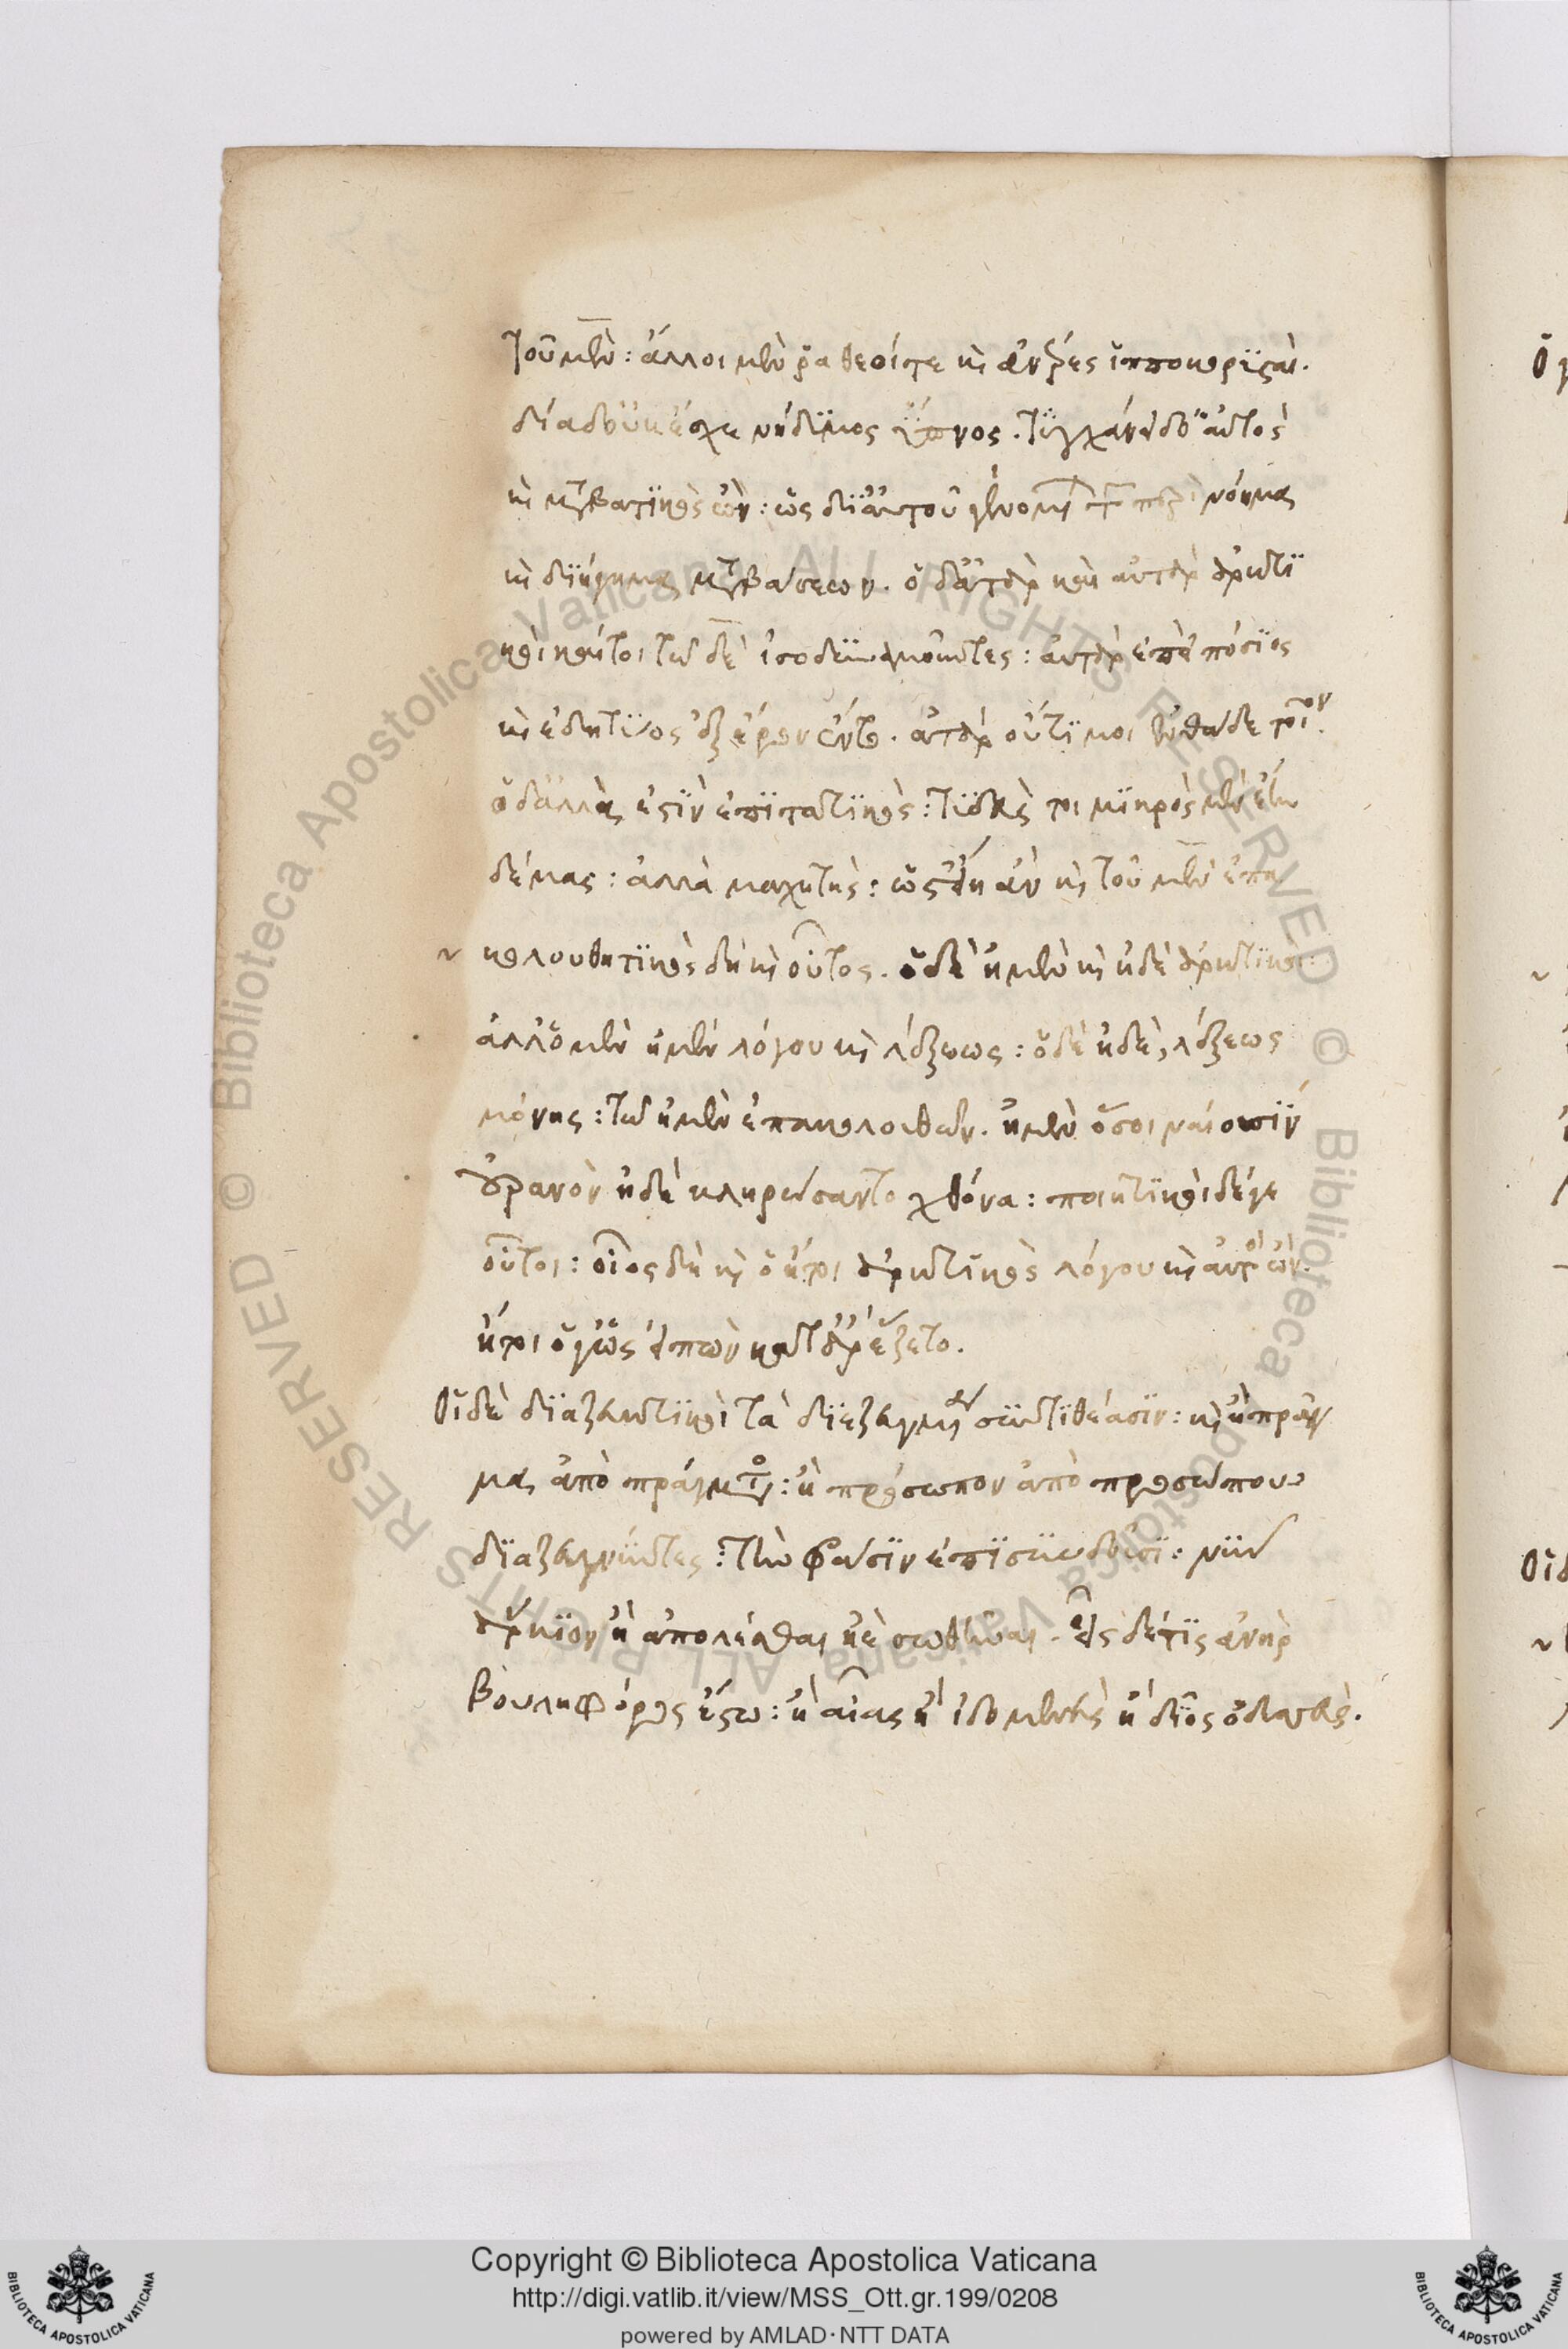 τοῦ μὲν: ἄλλοι μέν ῥα θεοί τε κ̀ ἀνέρες ἱπποκορυσταί.
δία δ' οὐκ ἔχε νήδυμος ὕπνος. τυγχάνει δ' ὁ αὐτὸς
κ̀ μεταβατικὸς ὤν: ὡς δι' αὐτοῦ γίνομεν νόημα
κ̀ διήγημα μεταβάσεων. ὁ δ' ἀτὰρ καὶ αὐτὰρ ἀρκτι
κοὶ καί τοι τῷ δὲ ἰσοδυναμοῦντες: αὐτὰρ ἐπεὶ πόσιος
κ̀ ἐδητύος ἐξ ἔρον ἕντο. ἀτὰρ οὔτι μοι ἐνθάδε τοῖον
ὁ δ' ἀλλὰ ἐστὶν ἐπιτατικὸς: τυδεύς τοι μικρὸς μὲν ἔην
δέμας: ἀλλὰ μαχητὴς: ὡς ἂν κ̀ τοῦ μὲν ἐπα
κολουθητικὸς δὴ κ̀ οὗτος. ὁ δὲ ἠμὲν κ̀ ἠδὲ ἀρκτικοὶ
ἀλλ' ὁ μὲν ἠμὲν λόγου κ̀ λέξεως: ὁ δὲ ἠδὲ, λέξεως
μόνης: τῷ ἠμὲν ἐπακολουθῶν. ἠμὲν ὅσοι ναίουσιν
οὐρανὸν ἠδὲ κληρώσαντο χθόνα: ποιητικοὶ δέ γε
οὗτοι: οἷος δὴ κ̀ ὁ ἤτοι ἀρκτικὸς λόγου κ̀ αὐτὸς ὤν.
ἤτοι ὅγ' ὣς εἰπὼν κατ' ἄρ' ἕζετο.
Οἱ δὲ διαζευκτικοὶ τὰ διεζευγμένα συντιθέασιν: κ̀ ἢ πρᾶγ
μα ἀπὸ πράγματος: ἢ πρόσωπον ἀπὸ προσώπου
διαζευγνύντες: τὴν φράσιν ἐπισυνδέουσι: νῦν
ἄρκιον ἢ ἀπολέσθαι ἠὲ σωθῆναι. εἷς δέ τις ἀνὴρ
βουληφόρος ἔστω: ἢ αἴας ἢ ἰδομενεὺς ἢ δῖος ὀδυσσεύς.
Copyright © Biblioteca Apostolica Vaticana
http://digi.vatlib.it/view/MSS_Ott.gr.199/0208
powered by AMLAD·NTT DATA